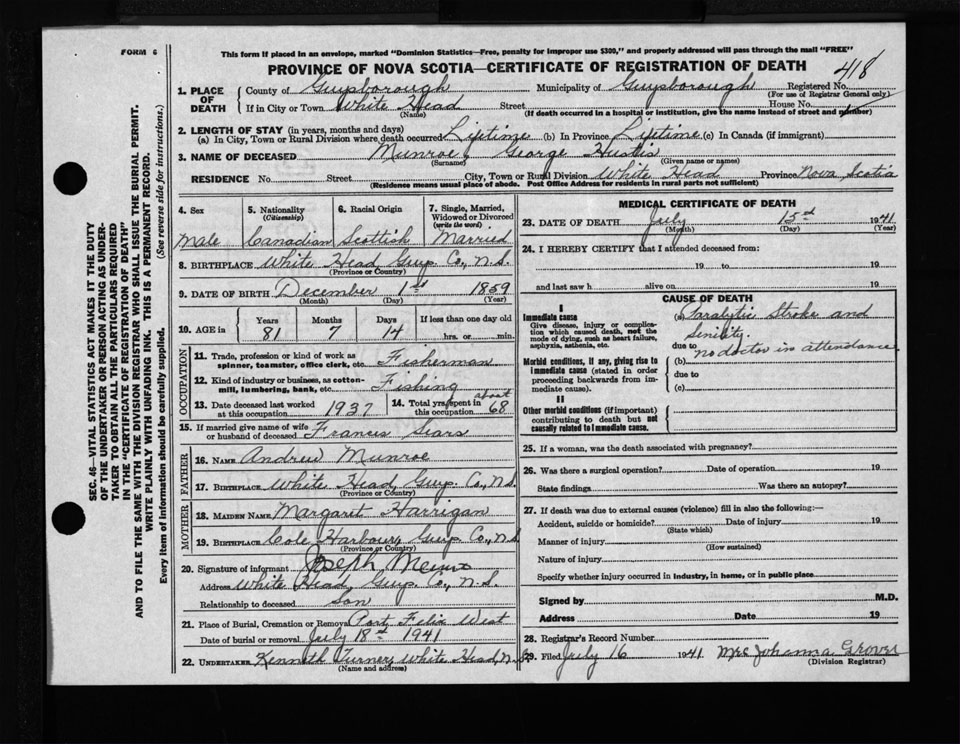 FORM 6
This form if placed in an envelope, marked "Dominion Statistics—Free, penalty for improper use $300," and properly addressed will pass through the mail "FREE"
PROVINCE OF NOVA SCOTIA—CERTIFICATE OF REGISTRATION OF DEATH
418
1. PLACE OF DEATH
County of Guysborough Municipality of Guysborough Registered No.
(For use of Registrar General only)
If in City or Town White Head Street House No.
(Name) (If death occurred in a hospital or institution, give the name instead of street and number)
2. LENGTH OF STAY (in years, months and days)
(a) In City, Town or Rural Division where death occurred Lifetime (b) In Province Lifetime (c) In Canada (if immigrant)
3. NAME OF DECEASED Munroe, George Hustis
(Surname) (Given name or names)
RESIDENCE No. Street City, Town or Rural Division White Head Province Nova Scotia
(Residence means usual place of abode. Post Office Address for residents in rural parts not sufficient)
4. Sex 5. Nationality (Citizenship) 6. Racial Origin 7. Single, Married, Widowed or Divorced (write the word)
Male Canadian Scottish Married
8. BIRTHPLACE White Head Guys. Co., N.S.
(Province or Country)
9. DATE OF BIRTH December 1st 1859
(Month) (Day) (Year)
10. AGE in Years Months Days If less than one day old
81 7 14 hrs. or min.
OCCUPATION
11. Trade, profession or kind of work as spinner, teamster, office clerk, etc. Fisherman
12. Kind of industry or business, as cotton-mill, lumbering, bank, etc. Fishing
13. Date deceased last worked at this occupation 1937 14. Total yrs. spent in this occupation about 68
15. If married give name of wife or husband of deceased Frances Sears
FATHER
16. NAME Andrew Munroe
17. BIRTHPLACE White Head, Guys. Co., N.S.
(Province or Country)
MOTHER
18. MAIDEN NAME Margaret Harrigan
19. BIRTHPLACE Cole Harbour, Guys. Co., N.S.
(Province or Country)
20. Signature of informant Joseph
Address White Head, Guys. Co., N.S.
Relationship to deceased Son
21. Place of Burial, Cremation or Removal Port Felix West
Date of burial or removal July 18th 1941
22. UNDERTAKER Kenneth Turner, White Head, N.S.
(Name and address)
MEDICAL CERTIFICATE OF DEATH
23. DATE OF DEATH July 15 1941
(Month) (Day) (Year)
24. I HEREBY CERTIFY that I attended deceased from:
19 to 19
and last saw h alive on 19
CAUSE OF DEATH
I
Immediate cause
Give disease, injury or complication which caused death, not the mode of dying, such as heart failure, asphyxia, asthenia, etc.
(a) Paralytic Stroke and
Senility.
due to no doctor in attendance
Morbid conditions, if any, giving rise to immediate cause (stated in order proceeding backwards from immediate cause).
(b)
due to
(c)
II
Other morbid conditions (if important) contributing to death but not causally related to immediate cause.
25. If a woman, was the death associated with pregnancy?
26. Was there a surgical operation? Date of operation 19
State findings Was there an autopsy?
27. If death was due to external causes (violence) fill in also the following:—
Accident, suicide or homicide? Date of injury 19
(State which)
Manner of injury
(How sustained)
Nature of injury
Specify whether injury occurred in industry, in home, or in public place
Signed by M.D.
Address Date 19
28. Registrar's Record Number
29. Filed July 16 1941 Mrs Johanna Grover
(Division Registrar)
SEC. 46—VITAL STATISTICS ACT MAKES IT THE DUTY
OF THE UNDERTAKER OR PERSON ACTING AS UNDER-
TAKER TO OBTAIN ALL THE PARTICULARS REQUIRED
IN THE "CERTIFICATE OF REGISTRATION OF DEATH"
AND TO FILE THE SAME WITH THE DIVISION REGISTRAR WHO SHALL ISSUE THE BURIAL PERMIT.
WRITE PLAINLY WITH UNFADING INK. THIS IS A PERMANENT RECORD.
Every item of information should be carefully supplied. (See reverse side for instructions.)